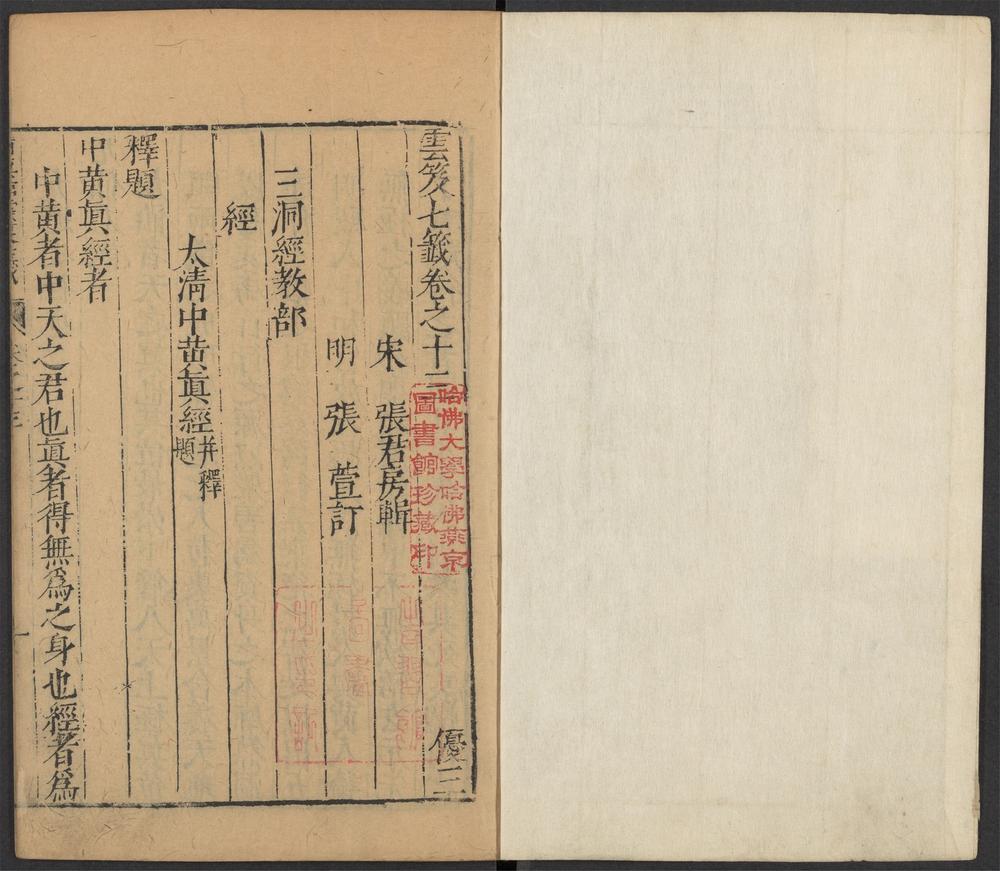 雲笈七籤卷之十三 優三
宋 張君房輯
明 張萱訂
三洞經教部
經
太清中黄眞經并釋題
釋題
中黄眞經者
中黄者中天之君也眞者得無爲之身也經者爲
哈佛大學哈佛燕京
圖書館珍藏印